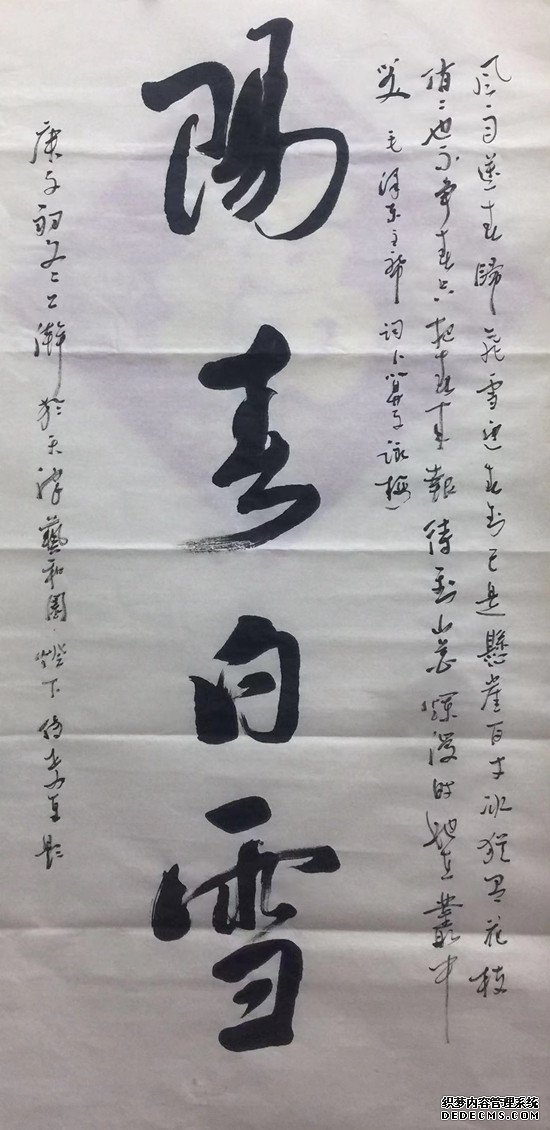 风雨送春歸飛雪迎春到已是懸崖百丈冰犹有花枝
俏〻也不争春只把春来報待到山花爛漫時她在叢中
笑 毛澤东主席词卜算子詠梅
陽春白雪
庚子初冬上澣於天津藝和園燈下
织梦内容管理系统
DEDECMS.COM